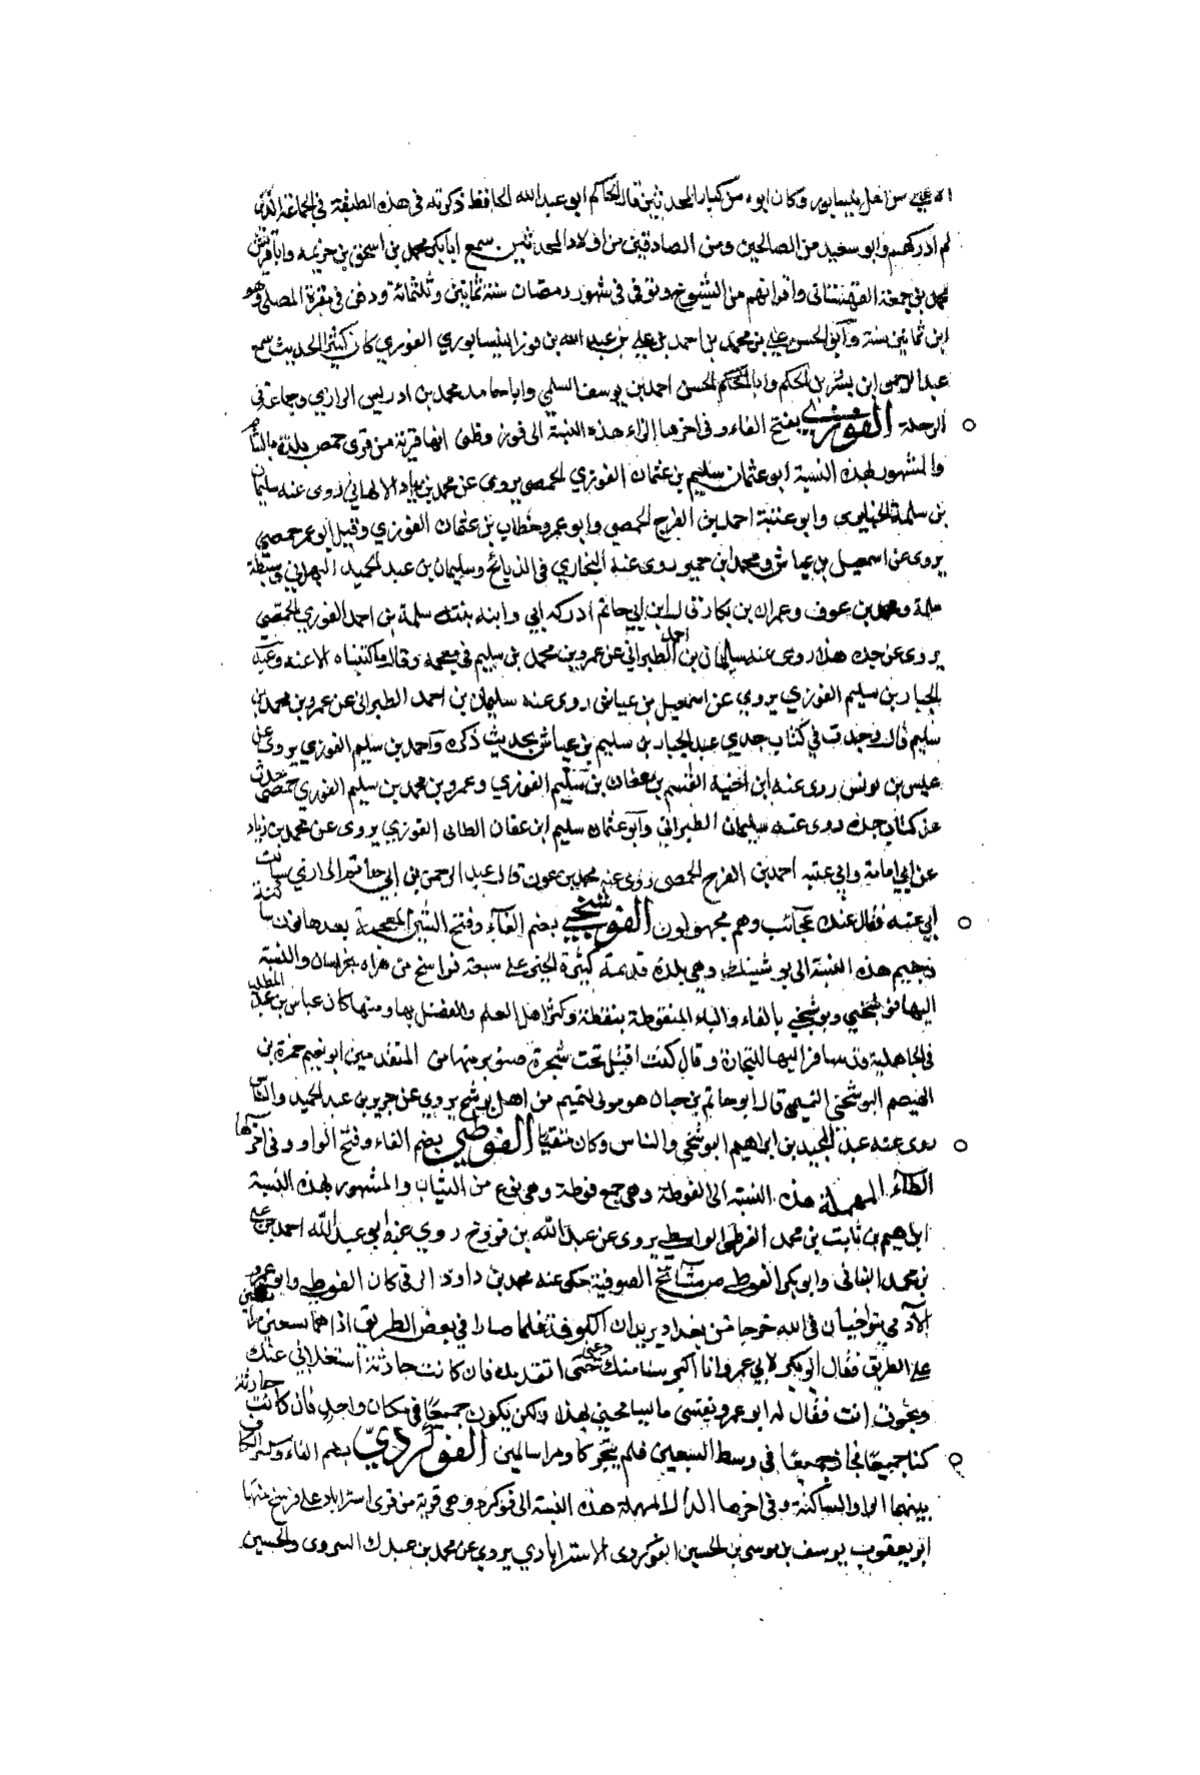 من اهل نيسابور وكان ابوه من كبار المحدثين قال الحاكم ابو عبد الله الحافظ ذكرته في هذه الطبقة في الجماعة الذين
لم ادركهم وابو سعيد من الصالحين ومن الصادقين من اولاد المحدثين سمع ابا بكر محمد بن اسحق بن خزيمه وابا قريش
محمد بن جمعة القهستاني واقرانهم من الشيوخ وتوفي في شهور رمضان سنة ثمانين وثلثمائة ودفن في مقبرة المصلى وهو
ابن ثمانين سنة وابو الحسن علي بن محمد بن احمد بن علي بن عبد الله بن فوز النيسابوري الفوزي كان كثير الحديث سمع
عبد الرحمن ابن بشر بن الحكم وابا الحسن احمد بن يوسف السلمي وابا حامد محمد بن ادريس الرازي وجماعة في
الرحلة الفوزي بفتح الفاء وفي اخرها الزاء هذه النسبة الى فوز وظني انها قرية من قرى حمص بلدة بالشام
والمشهور بهذه النسبة ابو عثمان سليم بن عثمان الفوزي الحمصي يروي عن محمد بن زياد الالهاني روى عنه سليمان
بن سلمة الخبايري وابو عتبة احمد بن الفرج الحمصي وابو عمرو خطاب بن عثمان الفوزي وقيل ابو عمر حمصي
يروى عن اسمعيل بن عياش ومحمد ابن حمير روى عنه البخاري في الذبايح وسليمان بن عبد الحميد البهراني
سلمة ومحمد بن عوف وعمران بن بكار قال ابن ابي حاتم ادركه ابي وابنه بنته سلمة بن احمد الفوزي الحمصي
يروى عن جده هذا روى عنه سليمان بن احمد الطبراني عن عمرو بن محمد بن سليم في معجمه وقال ما كتبناه الا عنه وعبد
الجبار بن سليم الفوزي يروي عن اسمعيل بن عياش روى عنه سليمان بن احمد الطبراني عن عمرو بن محمد بن
سليم قال وجدت في كتاب جدي عبد الجبار بن سليم بن عياش بحديث ذكره واحمد بن سليم الفوزي يروى عن
عيسى بن يونس روى عنه ابن اخيه القسم بن عفان بن سليم الفوزي وعمرو بن محمد بن سليم الفوزي حمصي حدث
عن كتاب جده روى عنه سليمان الطبراني وابو عثمان سليم ابن عفان الطائي الفوزي يروى عن محمد بن زياد
عن ابي امامة وابي عتبه احمد بن الفرج الحمصي روى عنه محمد بن عون قال عبد الرحمن بن ابي حاتم الرازي سالت
ابي عنه فقال عنده عجائب وهم مجهولون الفوشنجي بضم الفاء وفتح الشين المعجمة بعدها نون ساكنة
وجيم هذه النسبة الى بوشنك وهي بلدة قديمة كثيرة الخير على سبعة فراسخ من هراه بخراسان والنسبة
اليها فوشنجي وبوشنجي بالفاء والباء المنقوطة بنقطة وكثر اهل العلم والفضل بها ومنها كان عباس بن عبد المطلب
في الجاهلية قد سافر اليها للتجارة وقال كنت اقيل تحت شجرة صنوبر منها من المتقدمين ابو نعيم حمزة بن
الهيصم البوشنجي التميمي قال ابو حاتم بن حبان هو مولى لتميم من اهل بوشنج يروي عن جرير بن عبد الحميد والناس
روى عنه عبد المجيد بن ابراهيم البوشنجي والناس وكان متقنا الفوطي بضم الفاء وفتح الواو وفي اخرها
الطاء المهملة هذه النسبة الى الفوطة وهي جمع فوطة وهي نوع من الثياب والمشهور بهذه النسبة
ابراهيم بن ثابت بن محمد الفوطي الواسطي يروى عن عبد الله بن فروخ روي عنه ابو عبد الله احمد بن علي
بن محمد وابو بكر الفوطي من مشائخ الصوفية حكى عنه محمد بن داود الرقي كان الفوطي وابو عمرو
الآدمي يتواخيان في الله خرجا من بغداد يريدان الكوفة فلما صارا في بعض الطريق اذا هما بسبعين
على الطريق فقال ابو بكر لابي عمرو انا اكبر سنا منك دعني حتى اتقدمك فان كانت حادثة اشتغلا بي عنك
ونجوت انت فقال له ابو عمرو نفسي ما تسامحني بهذا ولكن يكون جميعا في مكان واحد فان كانت حادثة
كنا جميعا فجازا جميعا في وسط السبعين فلم يتحركا ومرا سالمين الفوكردي بضم الفاء وكسر الكاف
بينهما الواو الساكنة وفي اخرها الدال المهملة هذه النسبة الى فوكرد وهي قرية من قرى استراباد على فرسخ منها
ابو يعقوب يوسف بن موسى بن الحسين الفوكردى الاستراباذي يروي عن محمد بن عبدك السروى والحسين